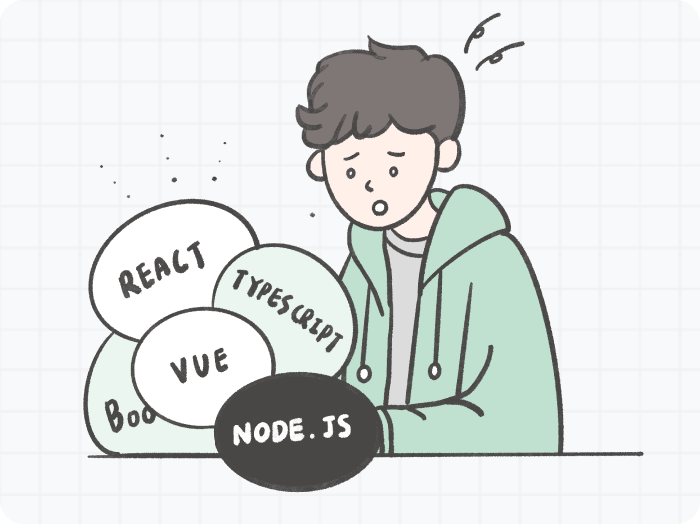 REACT
TYPESCRIPT
VUE
NODE.JS